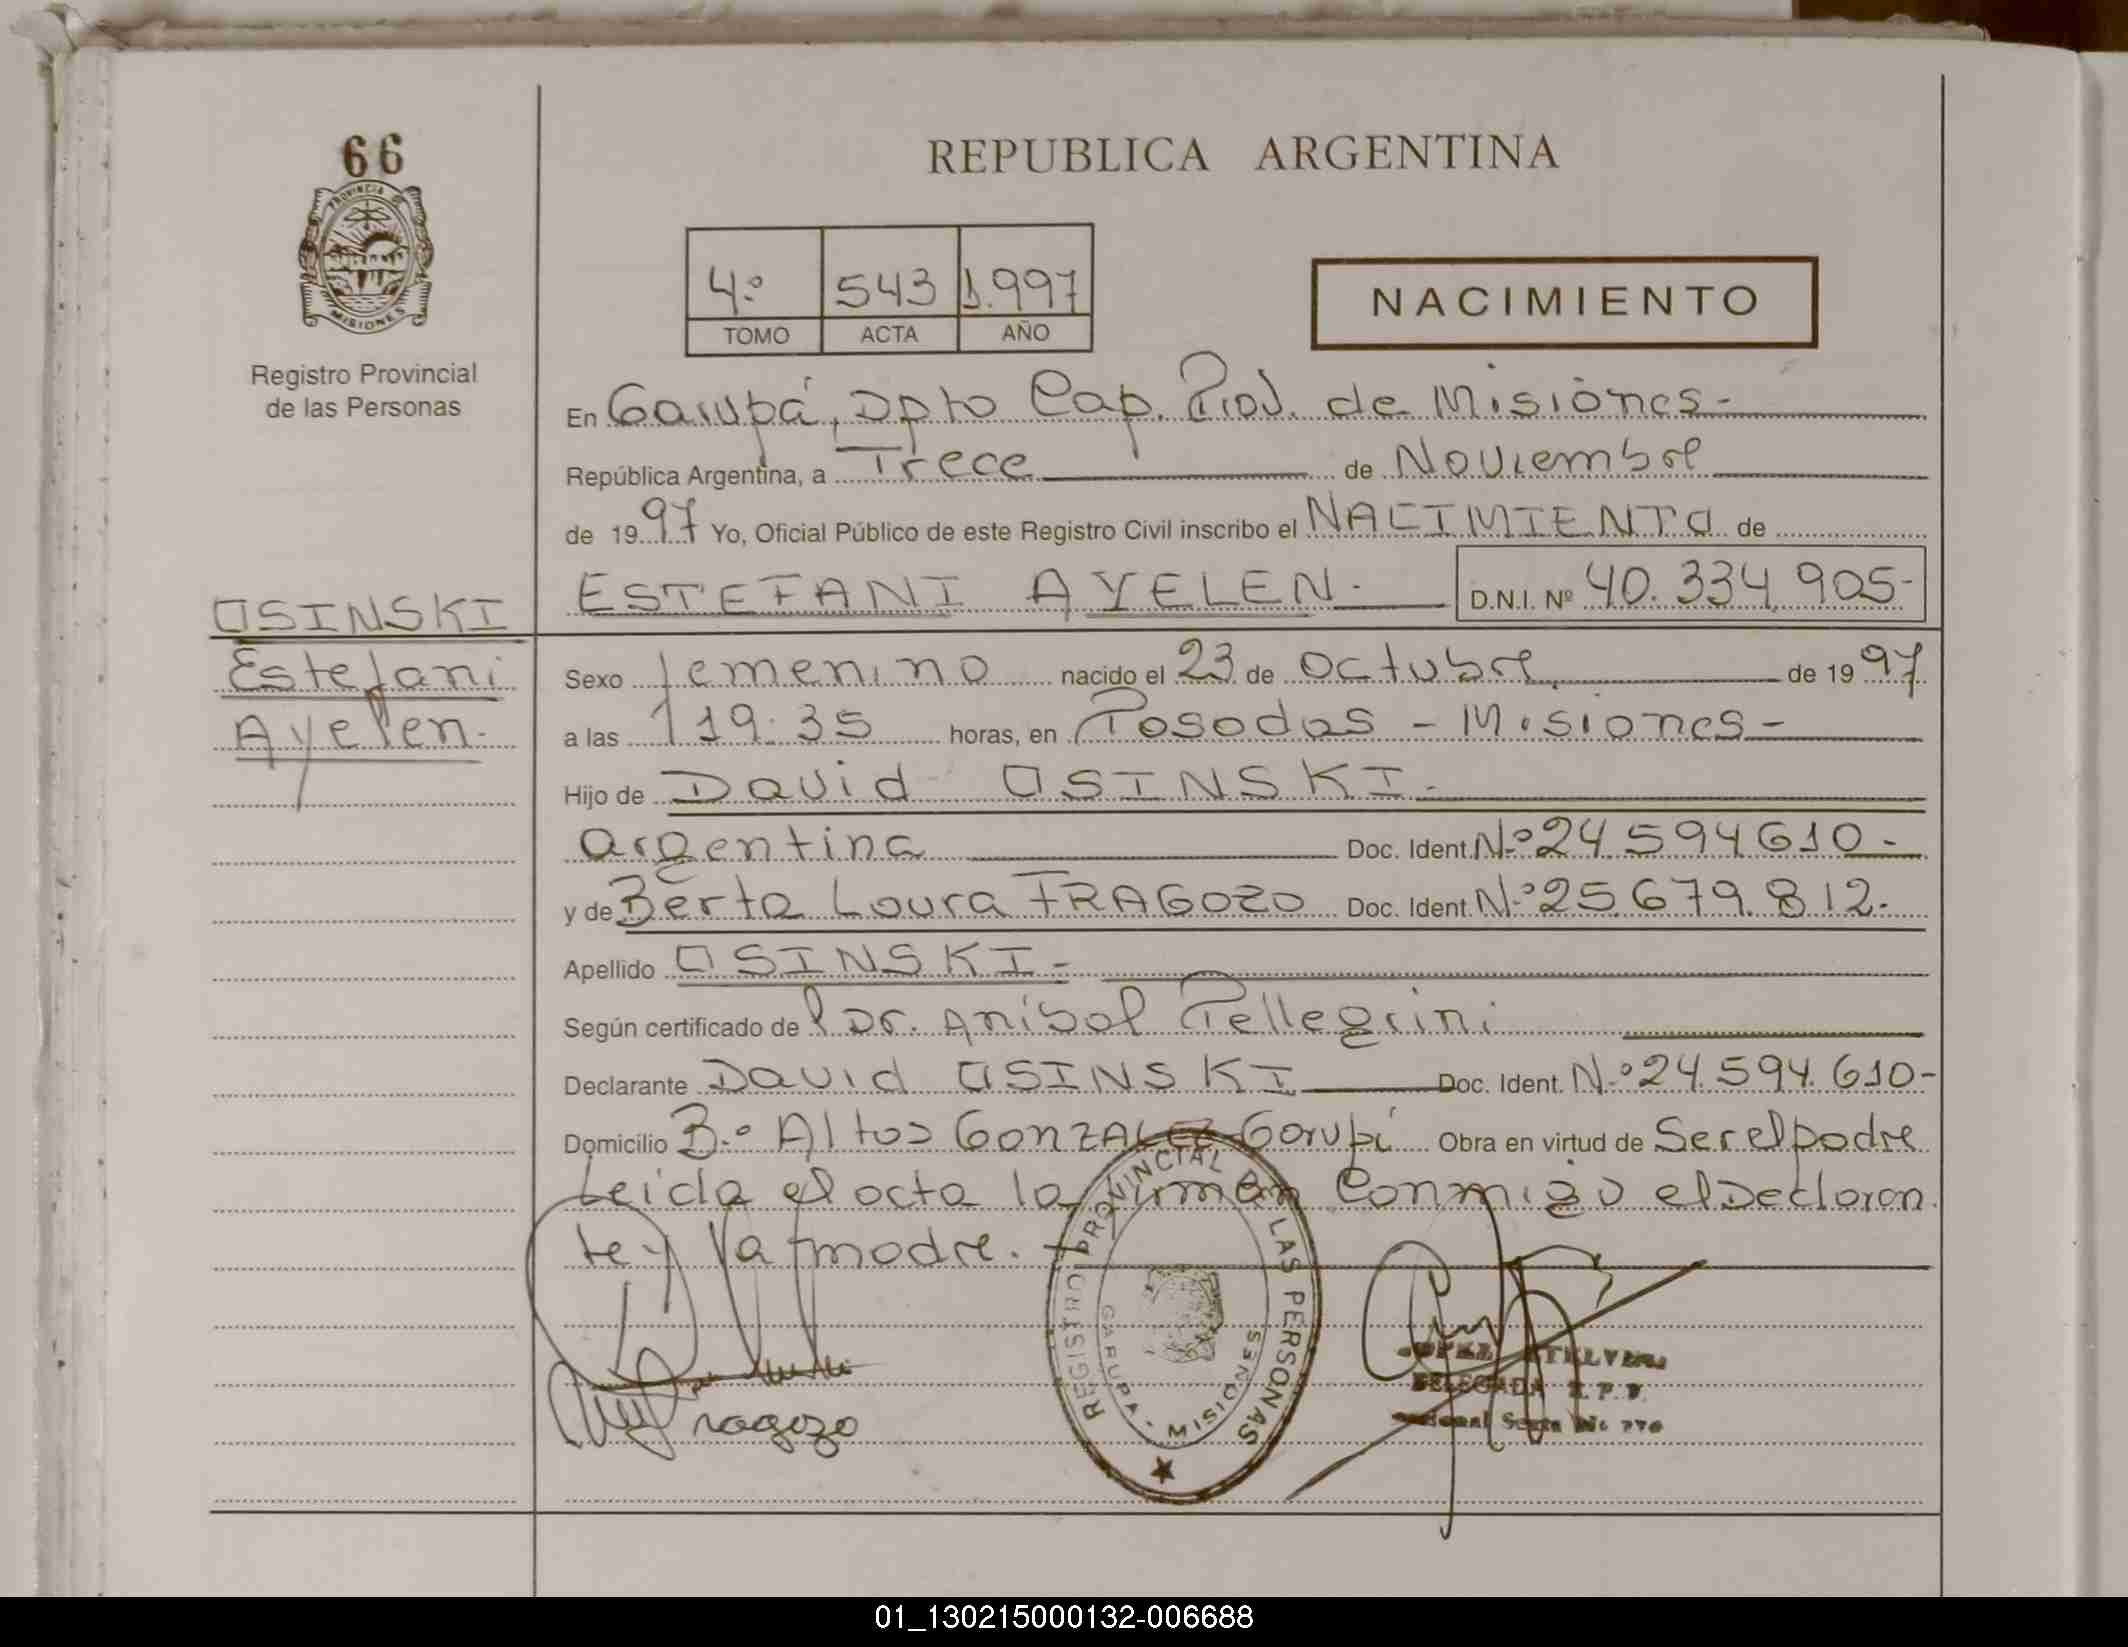 66
PROVINCIA DE
MISIONES
Registro Provincial
de las Personas
REPUBLICA ARGENTINA
4º 543 1.997
TOMO ACTA AÑO
NACIMIENTO
En Garupá, Dpto Cap. Prov. de Misiones-
República Argentina, a Trece de Noviembre
de 1997 Yo, Oficial Público de este Registro Civil inscribo el NACIMIENTO de
ESTEFANI AYELEN- D.N.I. Nº 40.334.905-
OSINSKI
Estefani
Ayelen-
Sexo femenino nacido el 23 de Octubre de 1997
a las 19:35 horas, en Posadas - Misiones-
Hijo de David OSINSKI-
argentina Doc. Ident. Nº 24.594.610-
y de Berta Laura FRAGOZO Doc. Ident. Nº 25.679.812-
Apellido OSINSKI-
Según certificado de l Dr. Anibal Pellegrini
Declarante David OSINSKI Doc. Ident. Nº 24.594.610-
Domicilio Bº Altos GONZALEZ-Garupá Obra en virtud de Ser el padre
Leida el acta la firman Conmigo el Declaran
te y la madre.
REGISTRO PROVINCIAL DE LAS PERSONAS
GARUPA - MISIONES
Fragozo
DELEGADA R.P.P.
01_130215000132-006688